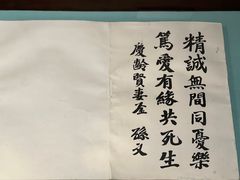 精誠無間同憂樂
篤愛有緣共死生
慶齡賢妻鑒
孫文